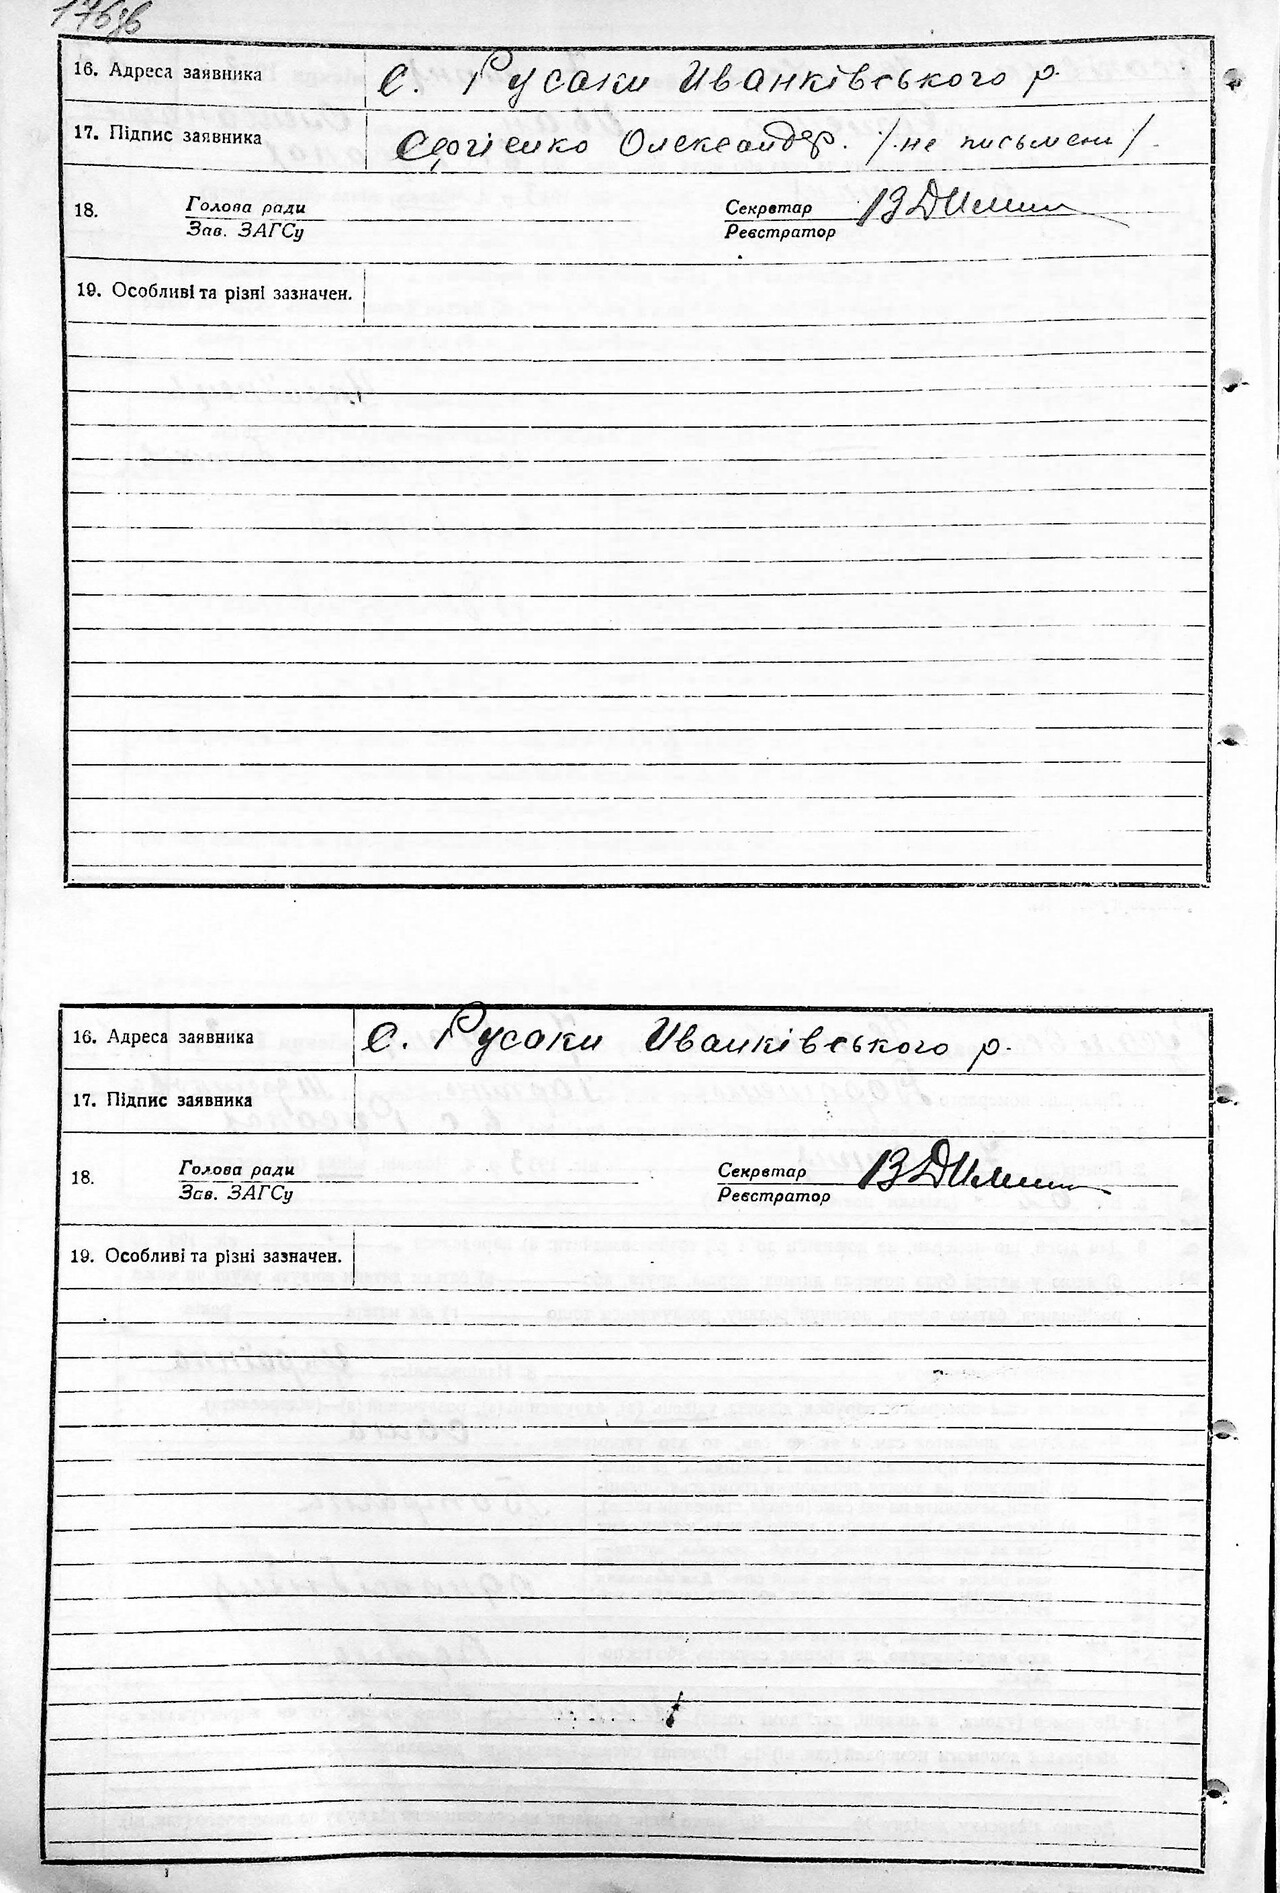 176зв
16. Адреса заявника с. Русаки Иванківського р.
17. Підпис заявника Сергієнко Олександр. /не письмени/.
18. Голова ради Секретар
Зав. ЗАГСу Реєстратор
19. Особливі та різні зазначен.
16. Адреса заявника с. Русаки Иванківського р.
17. Підпис заявника
18. Голова ради Секретар
Зав. ЗАГСу Реєстратор
19. Особливі та різні зазначен.